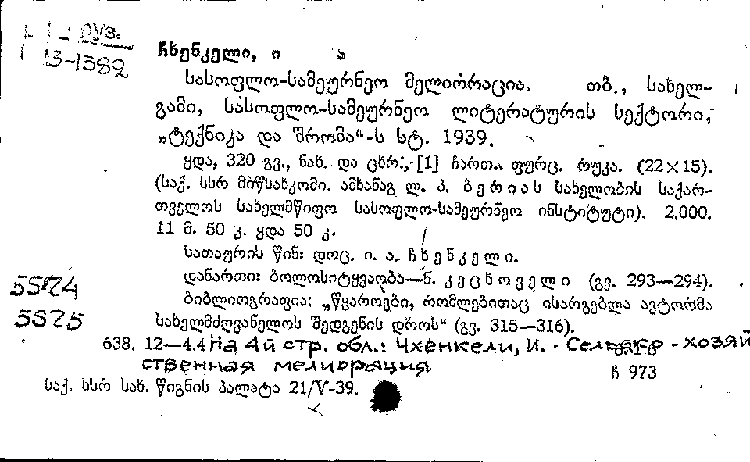 Груз.
13-1382
ჩხენკელი, ი ა
სასოფლო-სამეურნეო მელიორაცია. თბ., სახელ-
გამი, სასოფლო-სამეურნეო ლიტერატურის სექტორი,
„ტექნიკა და შრომა“-ს სტ. 1939.
ყდა, 320 გვ., ნახ. და ცხრ., [1] ჩართ. ფურც. რუკა. (22×15).
(საქ. სსრ მიწსახკომი. ამხანაგ ლ. პ. ბერიას სახელობის საქარ-
თველოს სახელმწიფო სასოფლო-სამეურნეო ინსტიტუტი). 2,000.
11 მ. 50 კ. ყდა 50 კ.
სათაურის წინ: დოც. ი. ა. ჩხენკელი.
დანართი: ბოლოსიტყვაობა—ნ. კეცხოველი (გვ. 293—294).
ბიბლიოგრაფია: „წყაროები, რომლებითაც ისარგებლა ავტორმა
სახელმძღვანელოს შედგენის დროს“ (გვ. 315—316).
5574
5575
638. 12—4.4 На 4й стр. обл.: Чхенкели, И. - Сельско-хозяй
ственная мелиорация
ჩ 973
საქ. სსრ სახ. წიგნის პალატა 21/V-39.